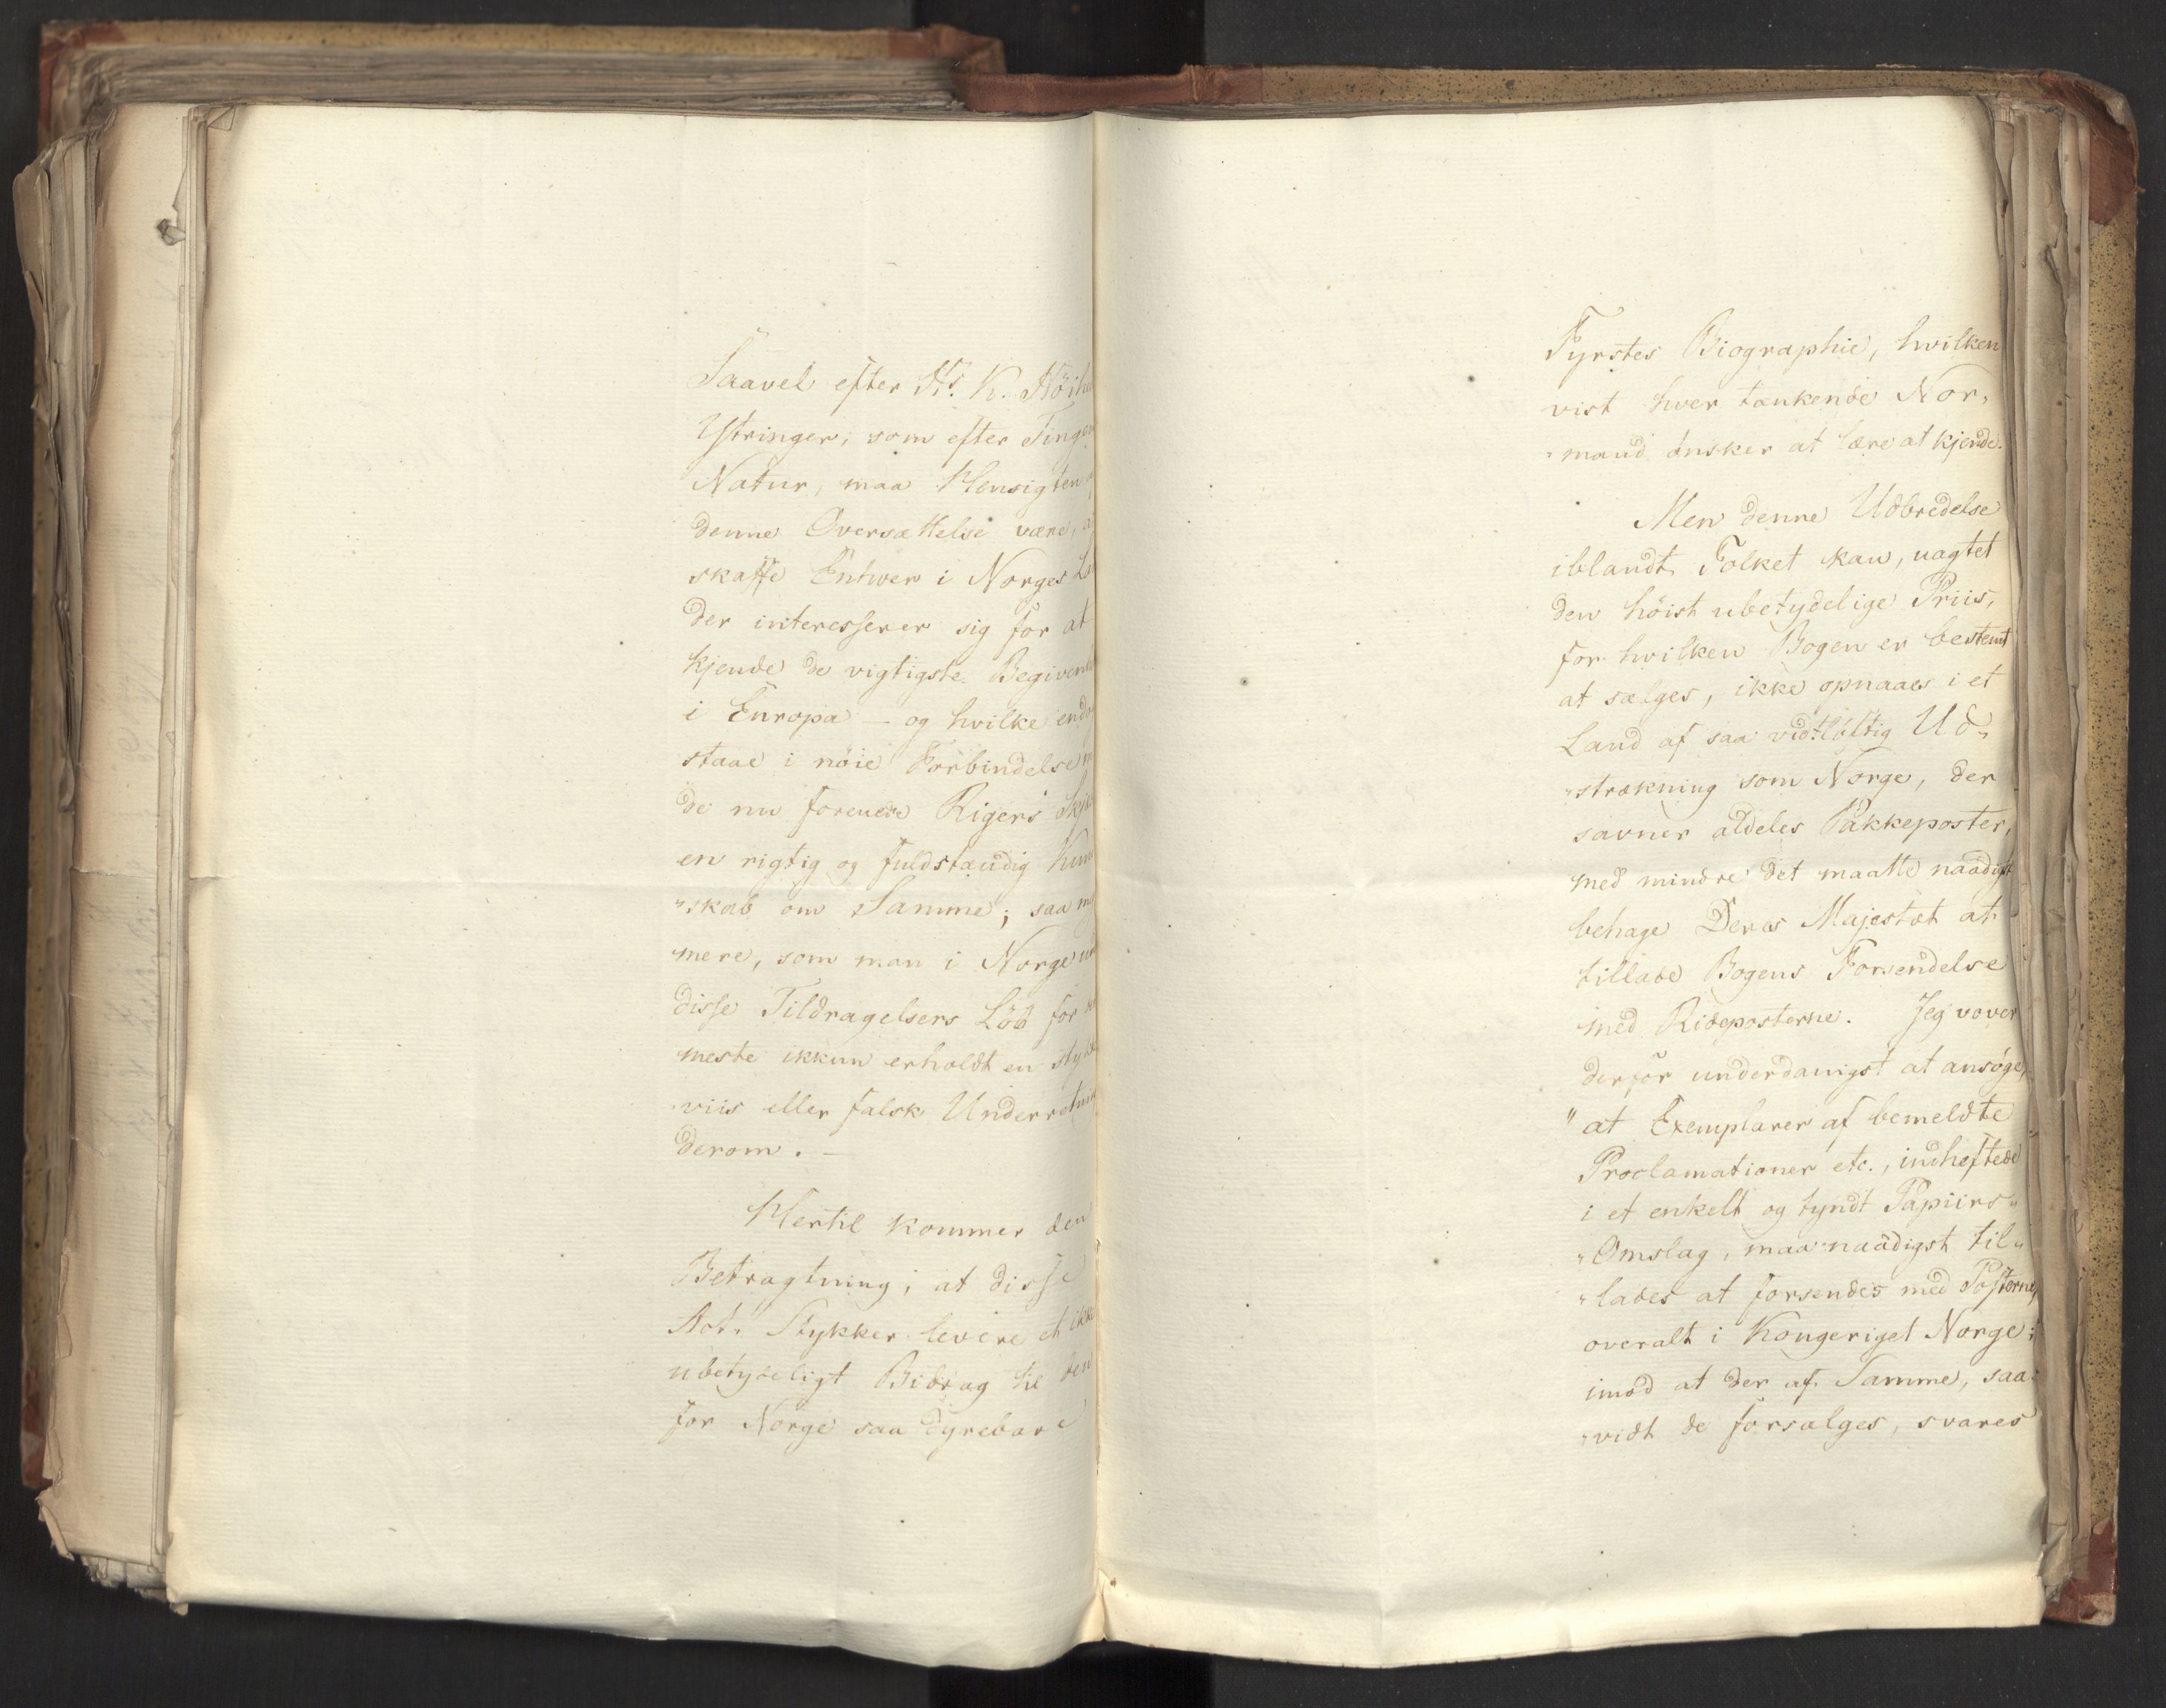 Saavel efter Hs. K. Höih
Yttringer, som efter Tingen
Natur, maa Hensigten
denne Oversættelse være, a
skaffe Enhver i Norges La
der interesserer sig for at
kjende de vigtigste Begivenh
i Europa – og hvilke endog
staae i nöie Forbindelse m
de nu forenede Rigers Skj
en rigtig og fuldstændig Kund
"skab om Samme; saa m
mere, som man i Norge
disse Tildragelsers Löb for
meste ikkun erholdt en styk
viis eller falsk Underretnin
derom. –
Hertil kommer den
Betragtning, at disse
Act: Stykker levere et ikke
ubetydeligt Bidrag til den
for Norge saa dyrebare
Fyrstes Biographie, hvilken
vist hver tænkende Nor,
"mand önsker at lære at kjende.
Men denne Udbredelse
iblandt Folket kan, uagtet
den höist ubetydelige Priis,
for hvilken Bogen er bestemt
at sælges, ikke opnaaes i et
Land af saa vidtlöftig Ud„
"strækning som Norge, der
savner aldeles Pakkeposter,
med mindre det maatte naadigst
behage Deres Majestæt at
tillade Bogens Forsendelse
med Rideposterne. Jeg vover
derfor underdanigst at ansöge,
" at Exemplarer af bemeldte
Proclamationer etc., indheftede
i et enkelt og tyndt Papiirs„
"Omslag, maa naadigst til„
"lades at forsendes med Posterne,
overalt i Kongeriget Norge;
imod at der af Samme, saa
"vidt de forsælges, svares